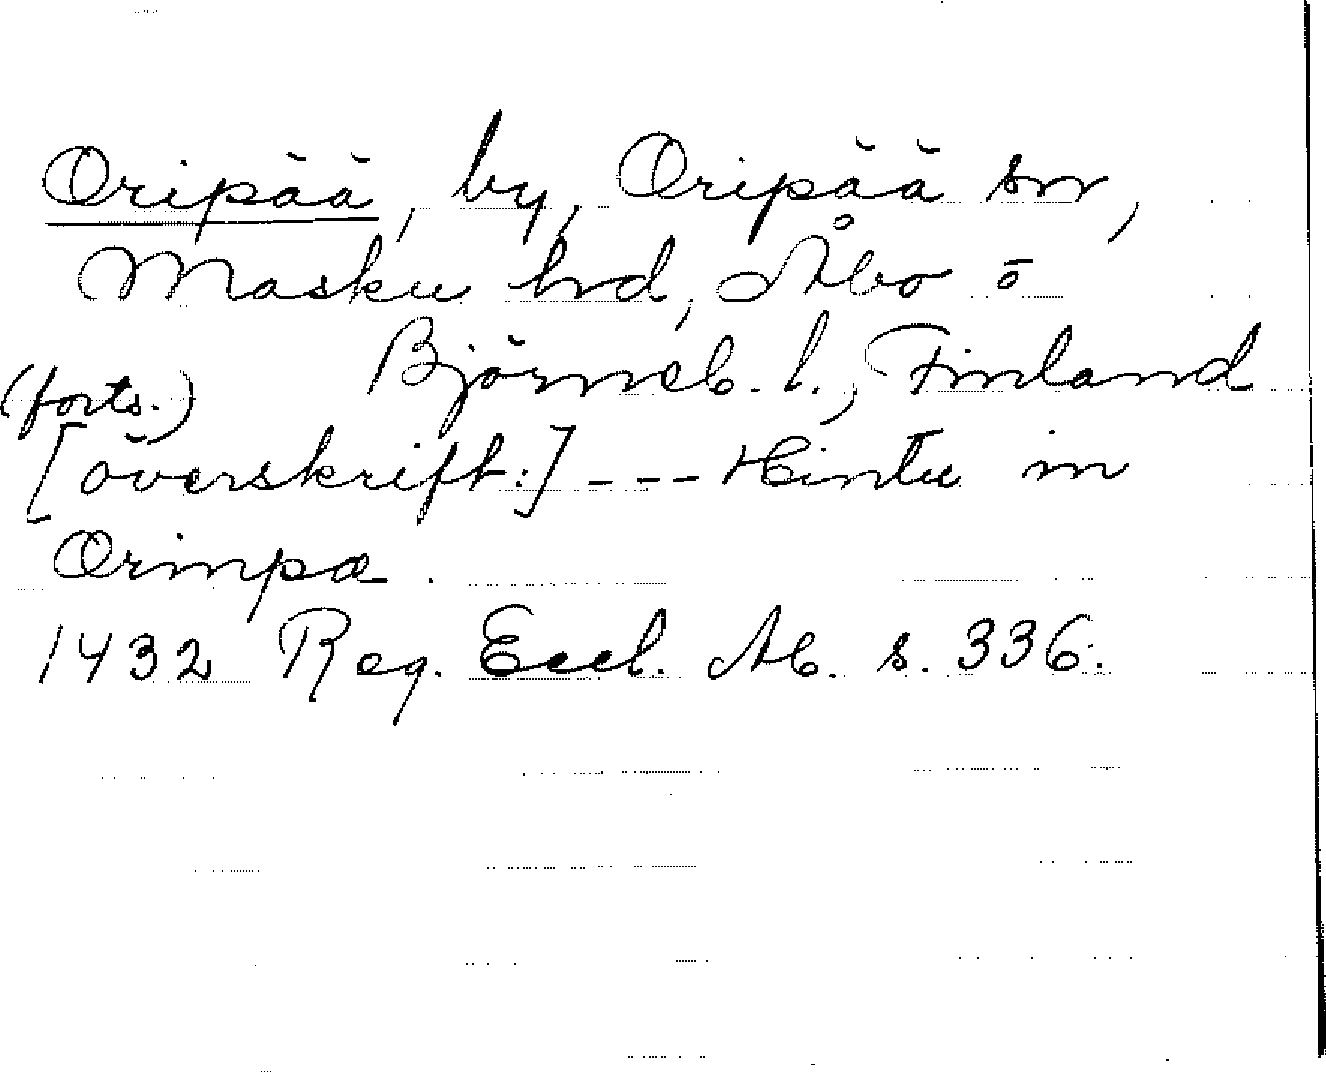 Oripää, by, Oripää sn,
Masku hd, Åbo o
Björneb. l., Finland
(forts.)
[överskrift:] --- Hintu in
Orimpæ.
1432 Reg. Eccl. Ab. s. 336.